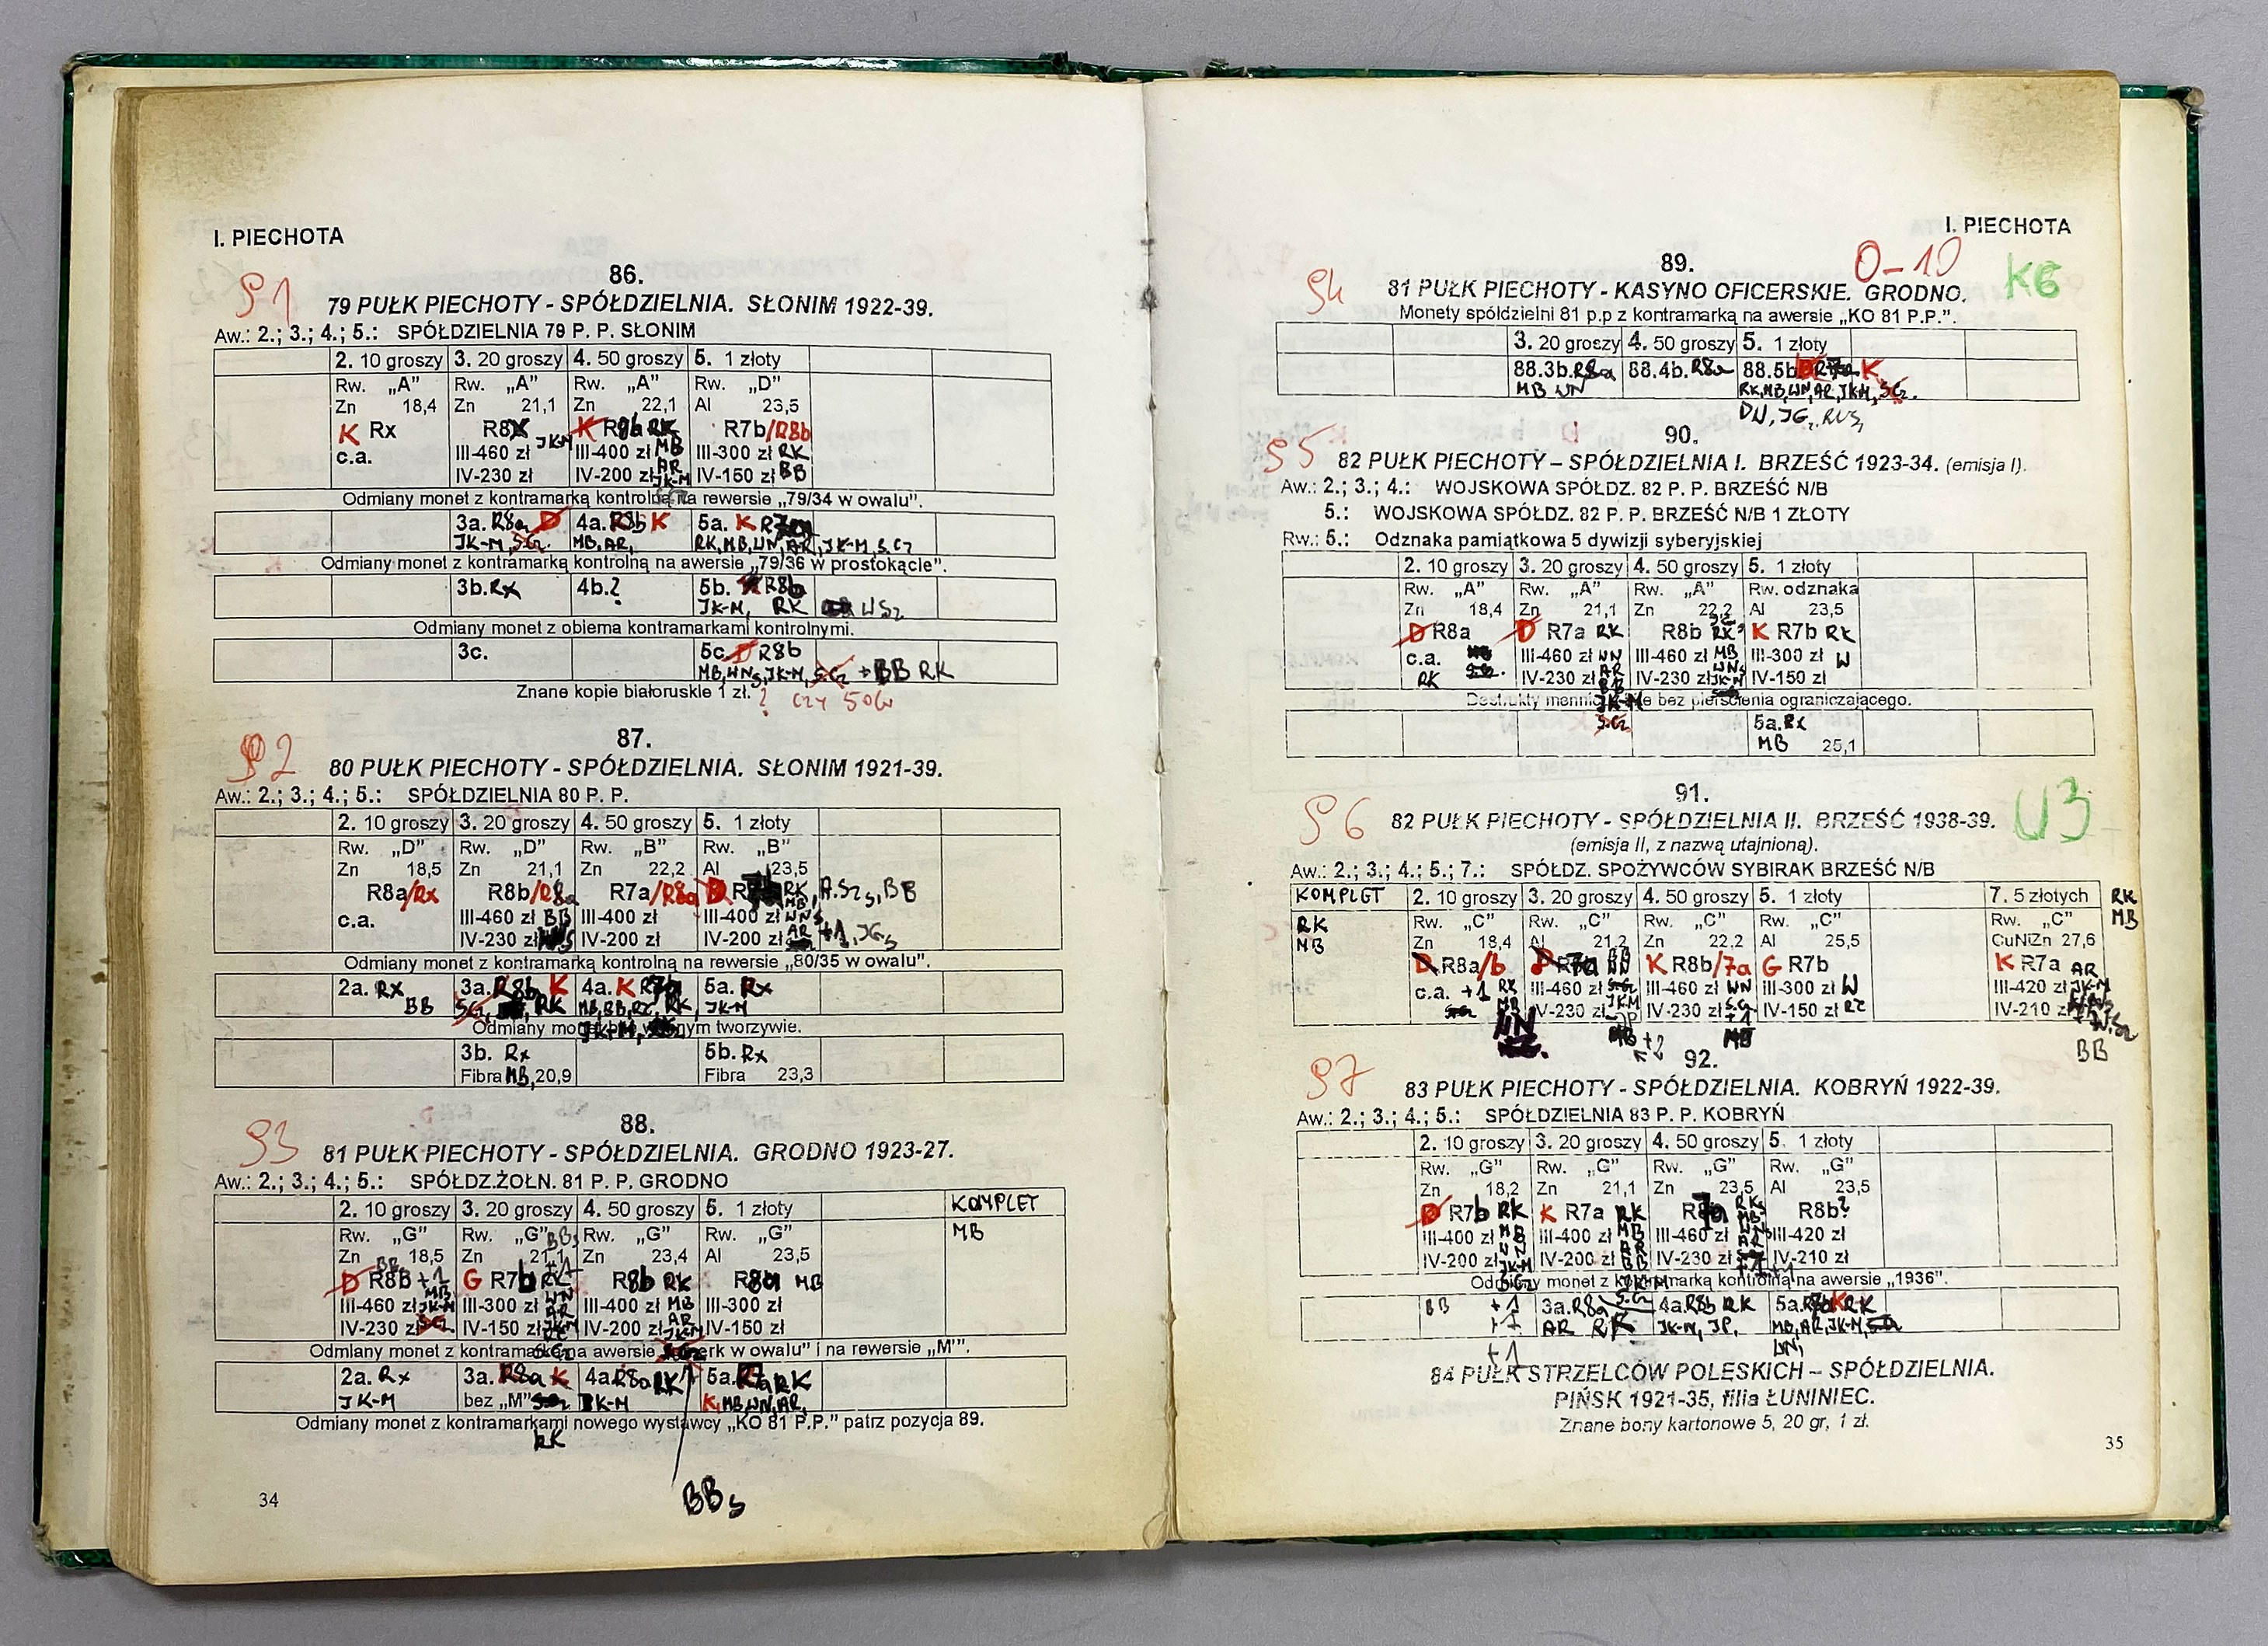 I. PIECHOTA
91
86.
79 PUŁK PIECHOTY - SPÓŁDZIELNIA. SŁONIM 1922-39.
Aw.: 2.; 3.; 4.; 5.: SPÓŁDZIELNIA 79 P. P. SŁONIM
2. 10 groszy 3. 20 groszy 4. 50 groszy 5. 1 złoty
Rw. „A” Rw. „A” Rw. „A” Rw. „D”
Zn 18,4 Zn 21,1 Zn 22,1 Al 23,5
K Rx R8 JK-M K RK R7b/R8b
c.a. III-460 zł III-400 zł MB III-300 zł RK
IV-230 zł IV-200 zł AR JK-M IV-150 zł BB
Odmiany monet z kontramarką kontrolną na rewersie „79/34 w owalu”.
3a. R8a D 4a. K 5a. K
JK-M, MB, AR, RK, MB, WN, AR, JK-M, S.Cz
Odmiany monet z kontramarką kontrolną na awersie „79/36 w prostokącie”.
3b. Rx 4b. ? 5b. R8b
JK-M, RK
Odmiany monet z obiema kontramarkami kontrolnymi.
3c. 5c. D R8b
MB, WN, JK-M, + BB RK
Znane kopie białoruskie 1 zł. ? czy 50 Gr
92
87.
80 PUŁK PIECHOTY - SPÓŁDZIELNIA. SŁONIM 1921-39.
Aw.: 2.; 3.; 4.; 5.: SPÓŁDZIELNIA 80 P. P.
2. 10 groszy 3. 20 groszy 4. 50 groszy 5. 1 złoty
Rw. „D” Rw. „D” Rw. „B” Rw. „B”
Zn 18,5 Zn 21,1 Zn 22,2 Al 23,5
R8a/Rx R8b/R8a R7a/R8a RK BB
c.a. III-460 zł BB III-400 zł III-400 zł
IV-230 zł IV-200 zł IV-200 zł AR +1
Odmiany monet z kontramarką kontrolną na rewersie „80/35 w owalu”.
2a. Rx 3a. R8b K 4a. K 5a. Rx
BB RK MB, BB, RK JK-M
Odmiany monet w innym tworzywie.
3b. Rx 5b. Rx
Fibra MB, 20,9 Fibra 23,3
93
88.
81 PUŁK PIECHOTY - SPÓŁDZIELNIA. GRODNO 1923-27.
Aw.: 2.; 3.; 4.; 5.: SPÓŁDZ.ŻOŁN. 81 P. P. GRODNO
2. 10 groszy 3. 20 groszy 4. 50 groszy 5. 1 złoty KOMPLET
Rw. „G” Rw. „G” Rw. „G” Rw. „G” MB
Zn 18,5 Zn 21,1 Zn 23,4 Al 23,5
D R8B +1 G R7b RK R8b RK MB
III-460 zł JK-M III-300 zł III-400 zł MB III-300 zł
IV-230 zł IV-150 zł IV-200 zł AR JK-M IV-150 zł
Odmiany monet z kontramarką na awersie w owalu” i na rewersie „M”.
2a. Rx 3a. R8a K 4a. R8a RK 5a. RK
JK-M bez „M” JK-M K, MB, WN, AR,
Odmiany monet z kontramarkami nowego wystawcy „KO 81 P.P.” patrz pozycja 89.
RK
BB
34
I. PIECHOTA
94
89.
0-10
K6
81 PUŁK PIECHOTY - KASYNO OFICERSKIE. GRODNO.
Monety spółdzielni 81 p.p z kontramarką na awersie „KO 81 P.P.”.
3. 20 groszy 4. 50 groszy 5. 1 złoty
88.3b. R8a 88.4b. R8a 88.5b K
MB WN RK, MB, WN, AR, JK-M,
95
90.
82 PUŁK PIECHOTY – SPÓŁDZIELNIA I. BRZEŚĆ 1923-34. (emisja I).
Aw.: 2.; 3.; 4.: WOJSKOWA SPÓŁDZ. 82 P. P. BRZEŚĆ N/B
5.: WOJSKOWA SPÓŁDZ. 82 P. P. BRZEŚĆ N/B 1 ZŁOTY
Rw.: 5.: Odznaka pamiątkowa 5 dywizji syberyjskiej
2. 10 groszy 3. 20 groszy 4. 50 groszy 5. 1 złoty
Rw. „A” Rw. „A” Rw. „A” Rw. odznaka
Zn 18,4 Zn 21,1 Zn 22,2 Al 23,5
D R8a D R7a RK R8b RK K R7b RK
c.a. III-460 zł WN III-460 zł MB III-300 zł W
RK IV-230 zł AR IV-230 zł JK-M IV-150 zł
Destrukty mennicze bez pierścienia ograniczającego.
5a. Rx
MB 25,1
96
91.
U3
82 PUŁK PIECHOTY - SPÓŁDZIELNIA II. BRZEŚĆ 1938-39.
(emisja II, z nazwą utajnioną).
Aw.: 2.; 3.; 4.; 5.; 7.: SPÓŁDZ. SPOŻYWCÓW SYBIRAK BRZEŚĆ N/B
KOMPLET 2. 10 groszy 3. 20 groszy 4. 50 groszy 5. 1 złoty 7. 5 złotych RK
RK Rw. „C” Rw. „C” Rw. „C” Rw. „C” Rw. „C” MB
MB Zn 18,4 Al 21,2 Zn 22,2 Al 25,5 CuNiZn 27,6
D R8a/b K R8b/7a G R7b K R7a AR
c.a. +1 RK III-460 zł III-460 zł WN III-300 zł W III-420 zł JK-M
MB IV-230 zł IV-230 zł IV-150 zł IV-210 zł
WN MB +2 MB BB
97
92.
83 PUŁK PIECHOTY - SPÓŁDZIELNIA. KOBRYŃ 1922-39.
Aw.: 2.; 3.; 4.; 5.: SPÓŁDZIELNIA 83 P. P. KOBRYŃ
2. 10 groszy 3. 20 groszy 4. 50 groszy 5. 1 złoty
Rw. „G” Rw. „G” Rw. „G” Rw. „G”
Zn 18,2 Zn 21,1 Zn 23,5 Al 23,5
D R7b RK K R7a RK RK R8b?
III-400 zł MB III-400 zł MB III-460 zł MB III-420 zł
IV-200 zł WN JK-M IV-200 zł AR BB IV-230 zł IV-210 zł
Odmiany monet z kontramarką kontrolną na awersie „1936”.
BB +1 3a. R8a 4a. R8b RK 5a. K RK
+1 AR RK JK-M, JP, MB, AR, JK-M,
+1 WN,
84 PUŁK STRZELCÓW POLESKICH – SPÓŁDZIELNIA.
PIŃSK 1921-35, filia ŁUNINIEC.
Znane bony kartonowe 5, 20 gr, 1 zł.
35